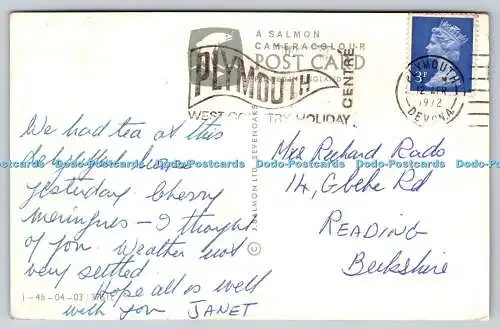 A SALMON
CAMERACOLOUR
POST CARD
PLYMOUTH
WEST COUNTRY HOLIDAY
CENTRE
3P
PLYMOUTH
12 APR
1972
DEVON
We had tea at this
delightful
yesterday. Cherry
meringues – I thought
of you. Weather not
very settled.
Hope all is well
with you JANET
J. SALMON LTD., SEVENOAKS
©
1-46-04-03
Mrs Richard Rado
14, Glebe Rd
READING
Berkshire
Dodo-Postcards Dodo-Postcards Dodo-Postcards Dodo-Postcards